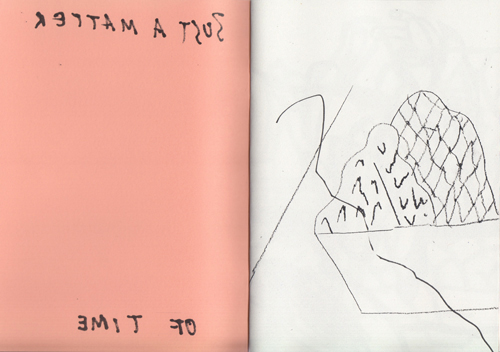 JUST A MATTER
OF TIME